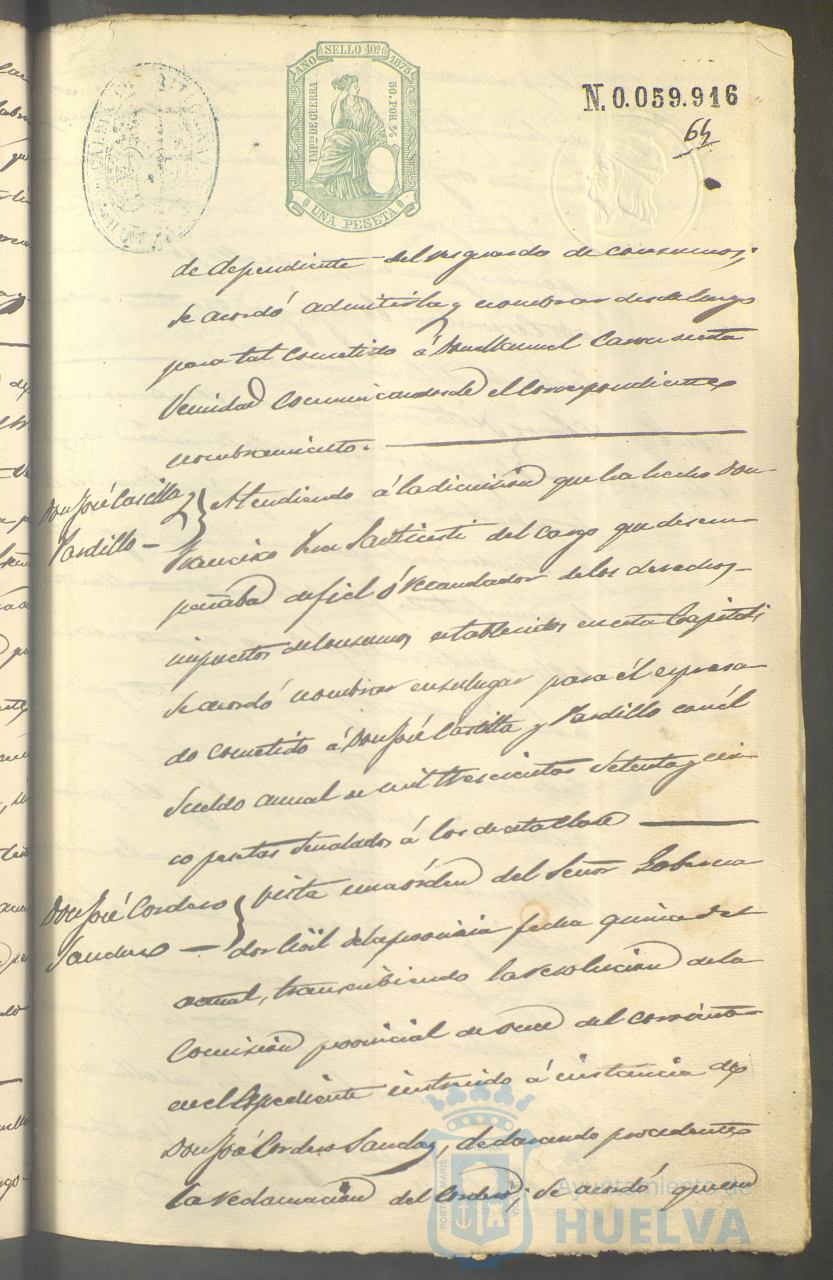 AÑO SELLO 10º 1875
IMPTO DE GUERRA
50. POR %
UNA PESETA
N. 0.059.916
64
de dependiente del resguardo de consumos;
se acordó admitirla y nombrar desde luego
para tal cometido á Don Manuel
Venidad comunicandosele el correspondiente
nombramiento.
Don José Castilla
Pardillo —
Atendiendo á la dimision que ha hecho Don
Francisco del cargo que desem-
peñaba de fiel ó recaudador de los derechos
impuestos de consumos establecidos en esta Capital;
se acordó nombrar en su lugar para él expresa-
do cometido á Don José Castilla y Pardillo con él
sueldo anual de mil trescientas setenta y cin-
co pesetas señalados á los de esta clase
Don José Cordero
Sanchez —
Vista una órden del Señor Goberna
dor Civil de la provincia fecha quince del
actual, transcribiendo la resolucion de la
Comision provincial de once del corriente
en el Expediente instruido á instancia de
Don José Cordero Sanchez, declarando procedente
la reclamacion del Cordero; se acordó que en
PORTUS MARIS
Ayuntamiento de
HUELVA